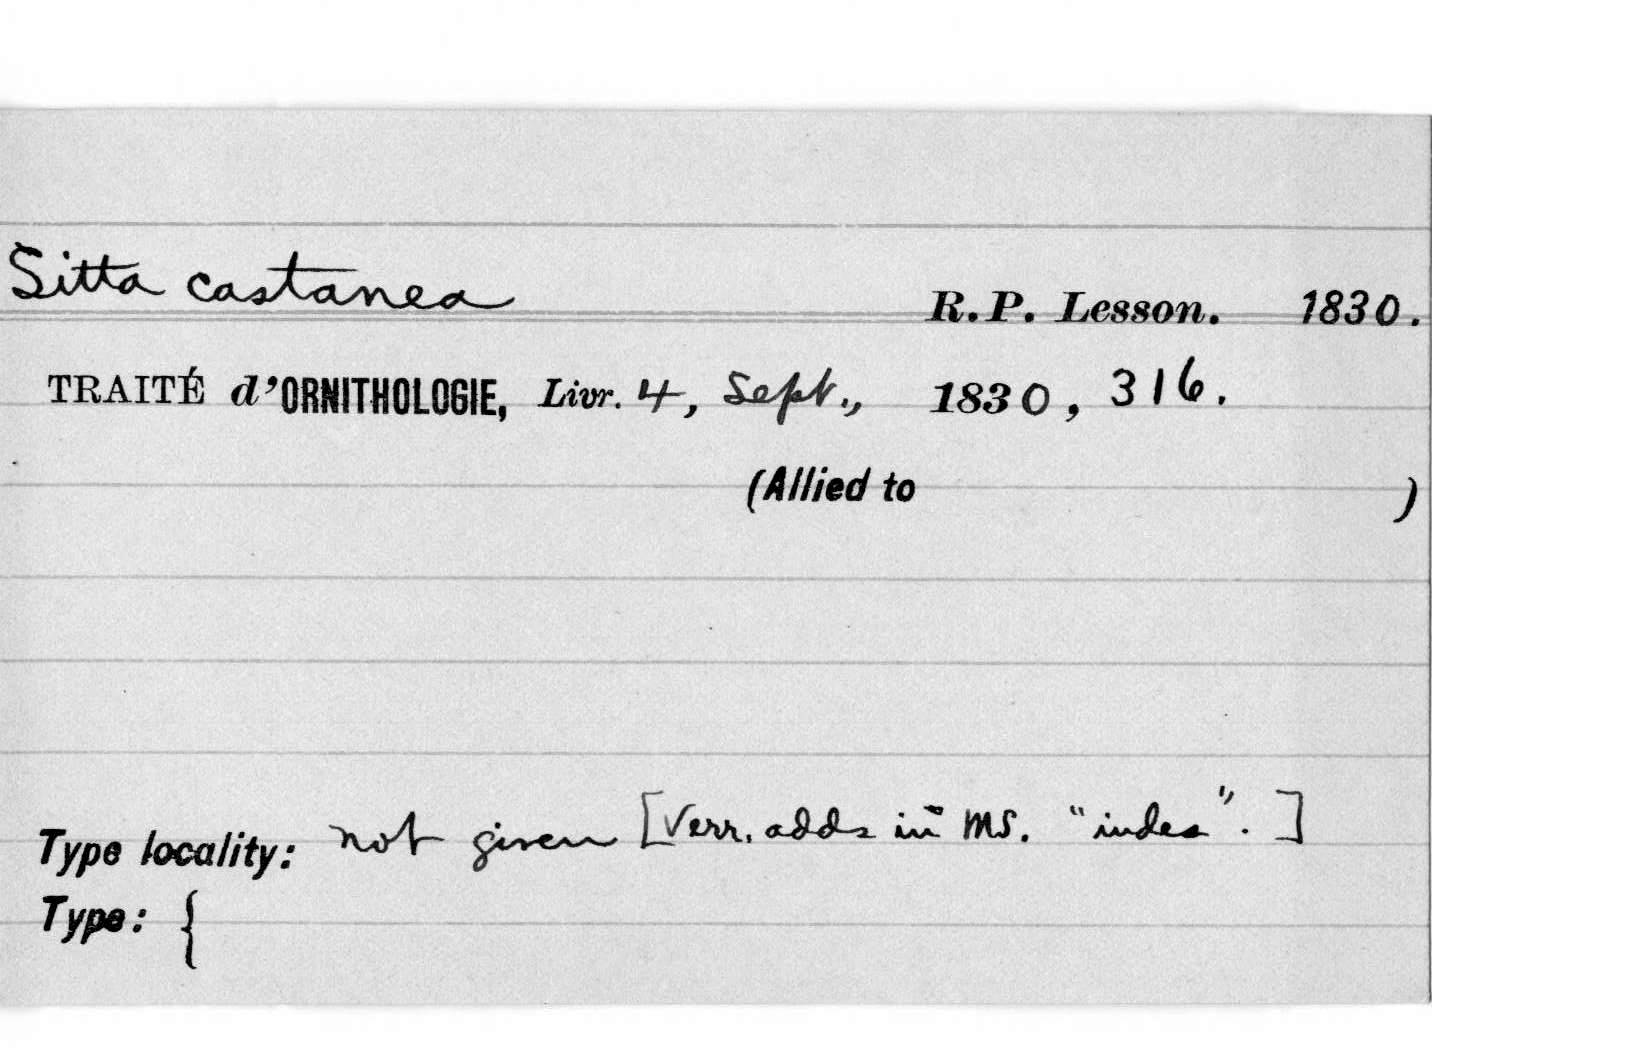 Sitta castanea R.P. Lesson. 1830.
TRAITÉ d'ORNITHOLOGIE, Livr. 4, Sept., 1830, 316.
(Allied to )
Type locality: not given [Verr. adds in MS. "indes". ]
Type: {